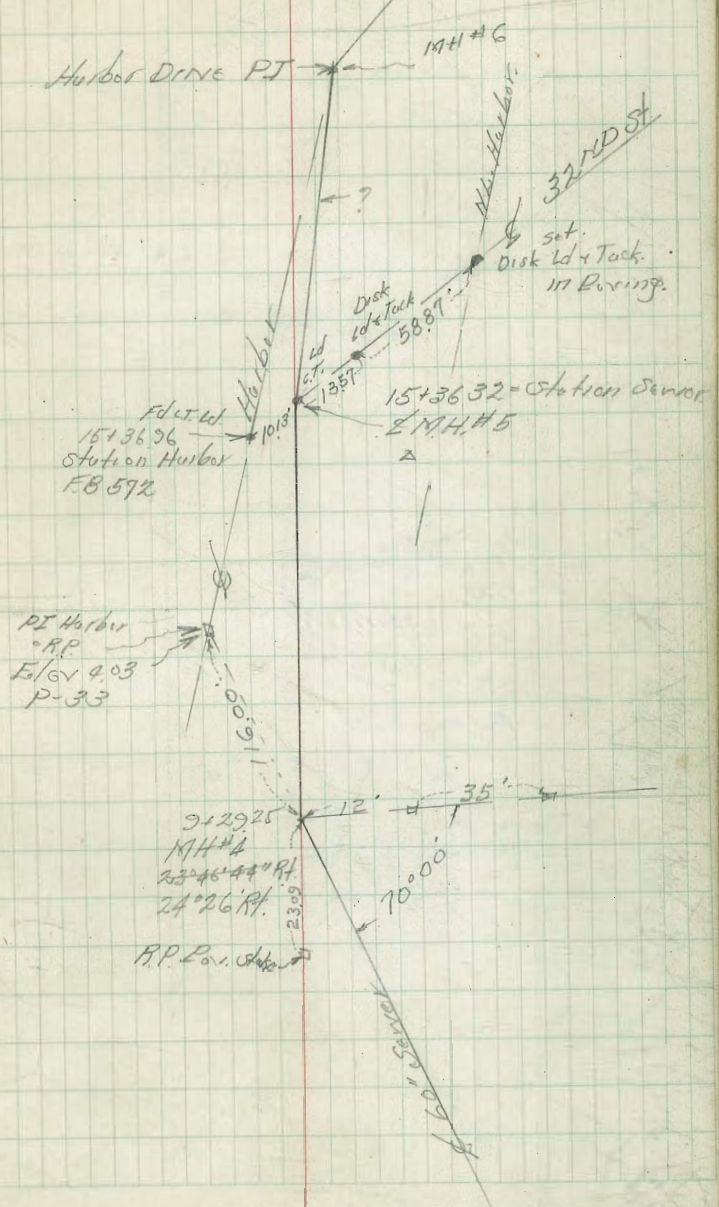 MH #6
Harbor Drive PI
Nly Harbor
32ND St
?
set.
Disk Ld & Tack.
in Paving.
Disk
Ld & Tack
58.87'
Ld
C.T.
13.57'
Harbor
15+36.32 = Station Sewer
¢ M.H. #5
Fd C.T. Ld
15+36.96
Station Harbor
F.B 572
10.13'
PI Harbor
R.P.
Elev 4.03
P-33
116.00'
9+29.25
MH #4
23°46'44" Rt.
24°26' Rt.
12'
35'
70°00'
23.09
R.P. Pav. Stake
¢ 60" Sewer